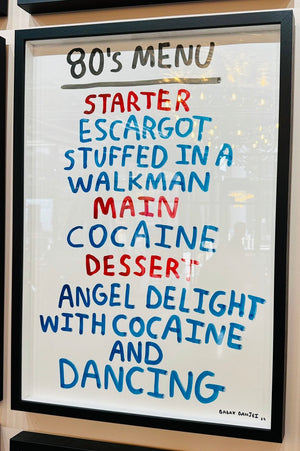 80's MENU
STARTER
ESCARGOT
STUFFED IN A
WALKMAN
MAIN
COCAINE
DESSERT
ANGEL DELIGHT
WITH COCAINE
AND
DANCING
BABAK GANJEI